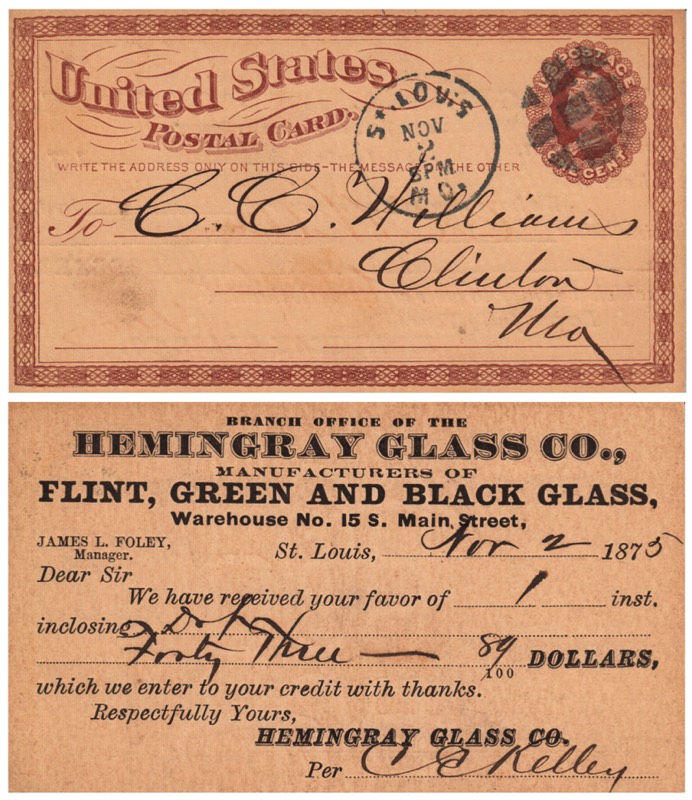 United States
POSTAL CARD.
WRITE THE ADDRESS ONLY ON THIS SIDE-THE MESSAGE ON THE OTHER
U.S. POSTAGE
ONE CENT
ST. LOUIS
NOV
2
5PM
MO.
To C. C. Williams
Clinton
Mo
BRANCH OFFICE OF THE
HEMINGRAY GLASS CO.,
MANUFACTURERS OF
FLINT, GREEN AND BLACK GLASS,
Warehouse No. 15 S. Main Street,
JAMES L. FOLEY,
Manager.
St. Louis, Nov 2 1875
Dear Sir
We have received your favor of 1 inst.
inclosing
Forty Three — 89/100 DOLLARS,
which we enter to your credit with thanks.
Respectfully Yours,
HEMINGRAY GLASS CO.
Per C E Kelley